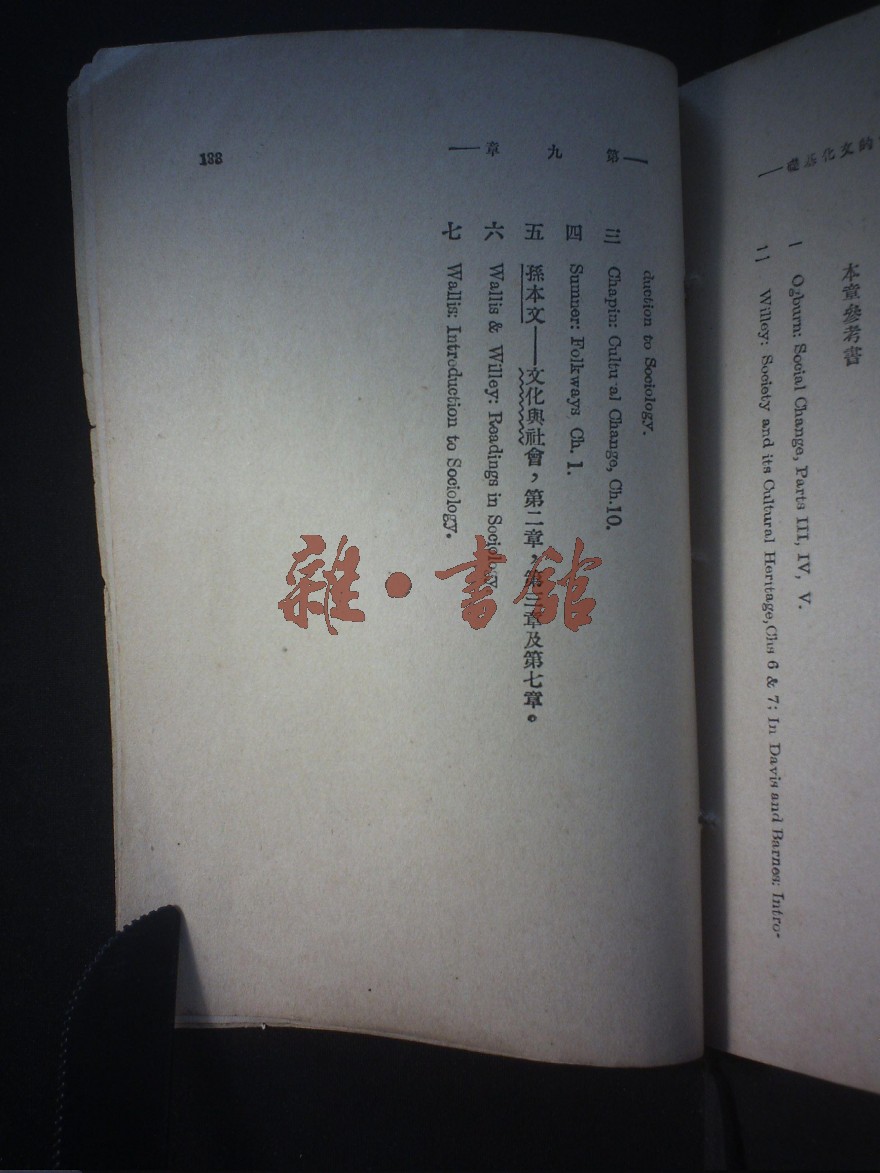 的文化基礎—
本章參考書
一 Ogburn: Social Change, Parts III, IV, V.
二 Willey: Society and its Cultural Heritage,Chs 6 & 7; In Davis and Barnes: Intro-
—第九章—
duction to Sociology.
三 Chapin: Cultu al Change, Ch.10.
四 Sumner: Folkways Ch. 1.
五 孫本文——文化與社會，第二章，第三章及第七章。
六 Wallis & Willey: Readings in Sociology
七 Wallis: Introduction to Sociology.
188
雜·書館